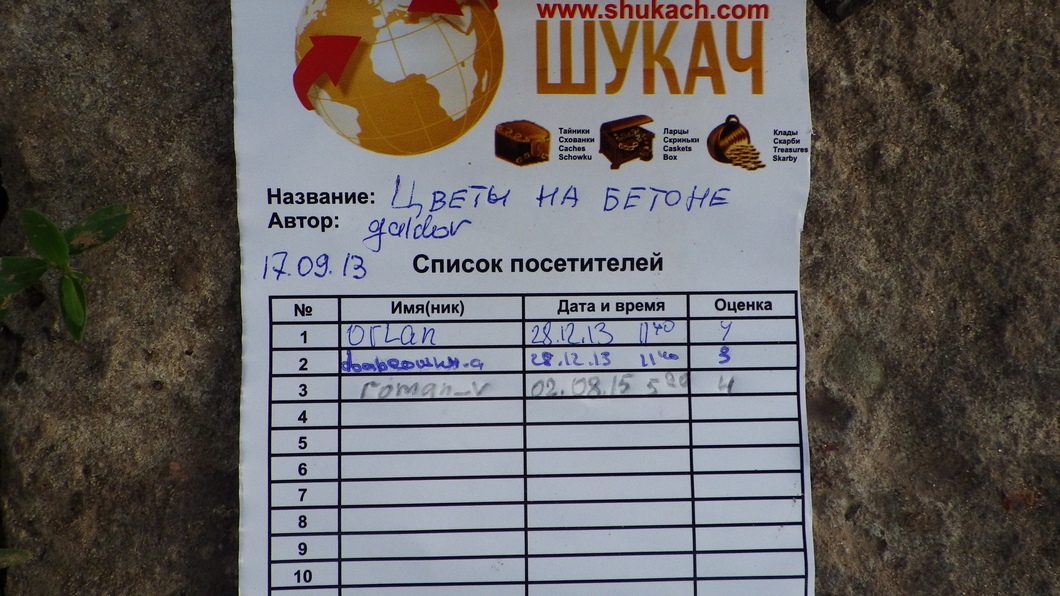 www.shukach.com
ШУКАЧ
Тайники
Схованки
Caches
Schowku
Ларцы
Скриньки
Caskets
Box
Клады
Скарби
Treasures
Skarby
Название: ЦВЕТЫ НА БЕТОНЕ
Автор: galdor
17.09.13 Список посетителей
№ Имя(ник) Дата и время Оценка
1 orlan 28.12.13 11 40 4
2 28.12.13 11 40 3
3 roman_v 02.08.15 4
4
5
6
7
8
9
10